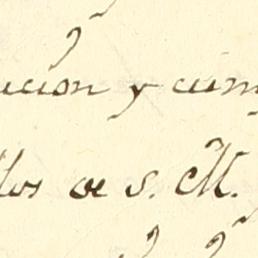 ución y cum
llos de S. M.